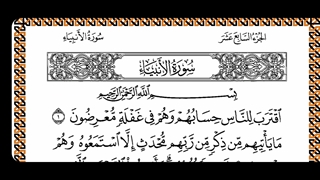 الجزء السابع عشر
سورة الأنبياء
سُورَةُ الأَنبِيَاءِ
بِسْمِ اللَّهِ الرَّحْمَٰنِ الرَّحِيمِ
ٱقْتَرَبَ لِلنَّاسِ حِسَابُهُمْ وَهُمْ فِى غَفْلَةٍ مُّعْرِضُونَ ١
مَا يَأْتِيهِم مِّن ذِكْرٍ مِّن رَّبِّهِم مُّحْدَثٍ إِلَّا ٱسْتَمَعُوهُ وَهُمْ